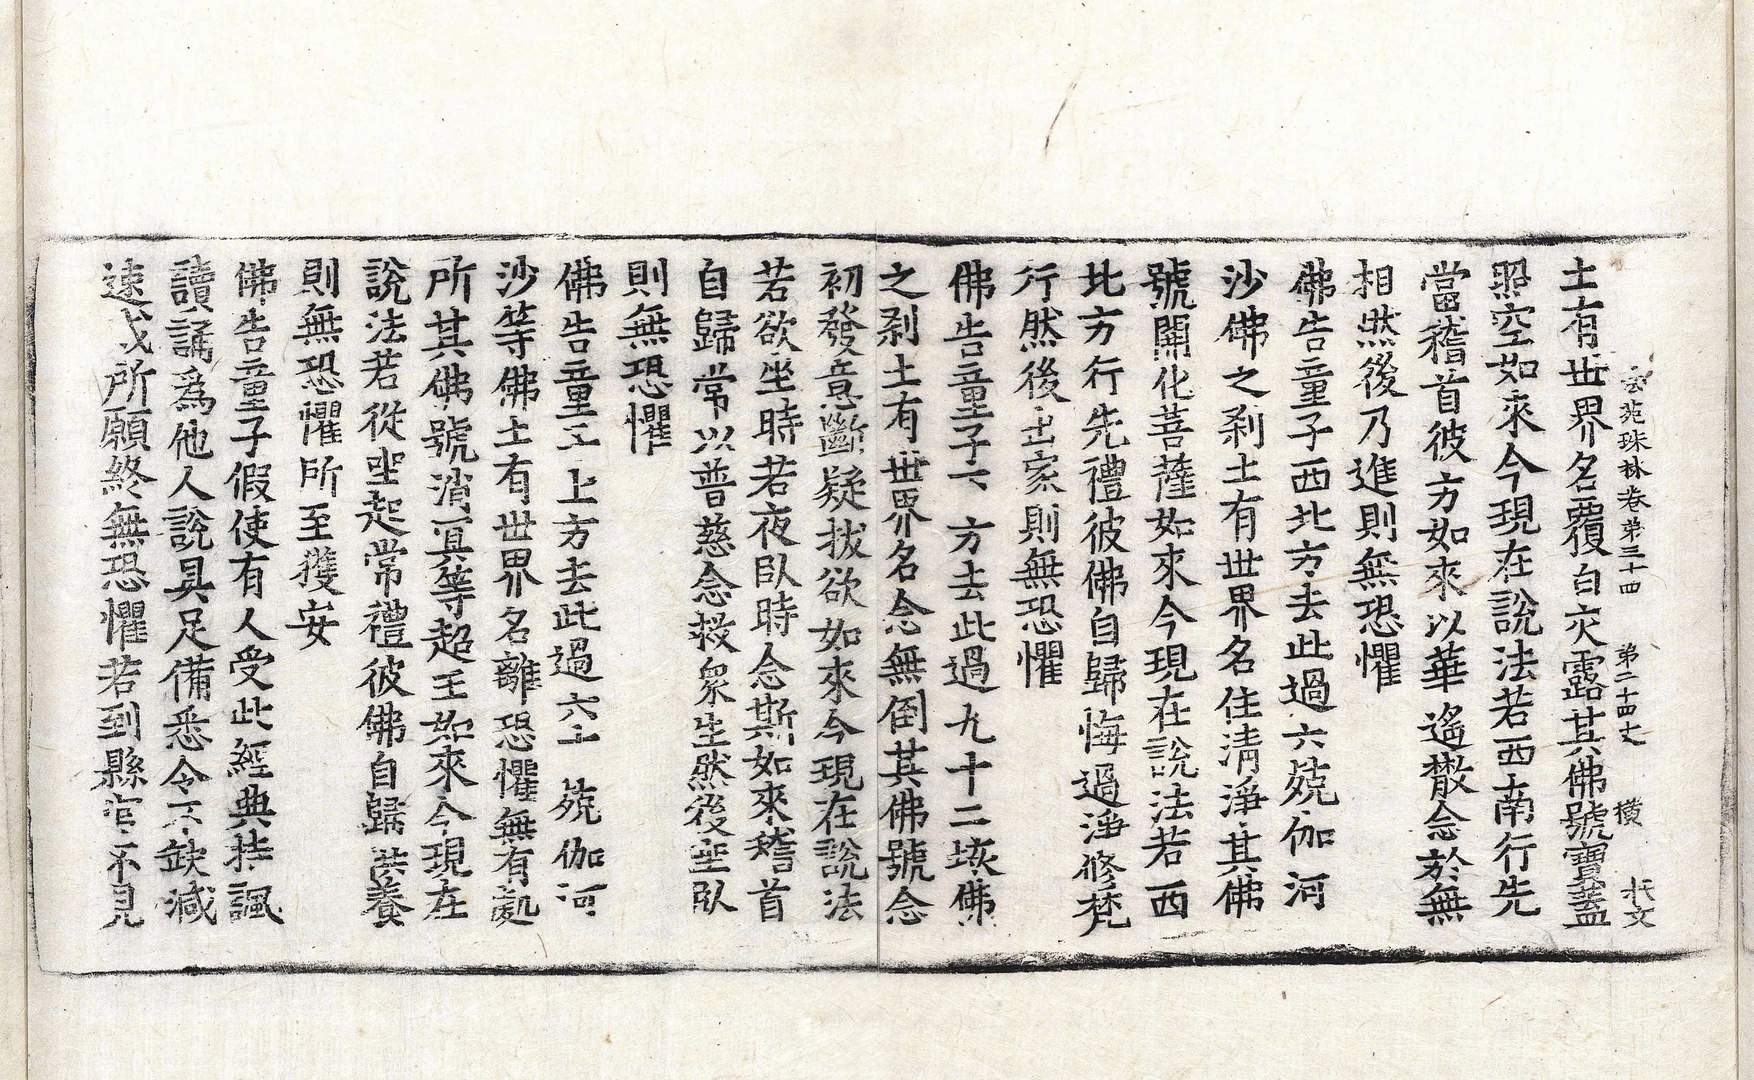 法苑珠林卷第三十四 第二十四丈 橫 大文
土有世界名覆白交露其佛號寶蓋
照空如來今現在說法若西南行先
當稽首彼方如來以華遙散念於無
相然後乃進則無恐懼
佛告童子西北方去此過六兢伽河
沙佛之刹土有世界名住淸淨其佛
號開化菩薩如來今現在說法若西
北方行先禮彼佛自歸悔過淨修梵
行然後出家則無恐懼
佛告童子下方去此過九十二垓佛
之刹土有世界名念無倒其佛號念
初發意斷疑拔欲如來今現在說法
若欲坐時若夜臥時念斯如來稽首
自歸常以普慈念救衆生然後坐臥
則無恐懼
佛告童子上方去此過六十兢伽河
沙等佛土有世界名離恐懼無有處
所其佛號消冥等超王如來今現在
說法若從坐起常禮彼佛自歸供養
則無恐懼所至獲安
佛告童子假使有人受此經典持諷
讀誦爲他人說具足備悉令不缺減
速成所願終無恐懼若到縣官不見